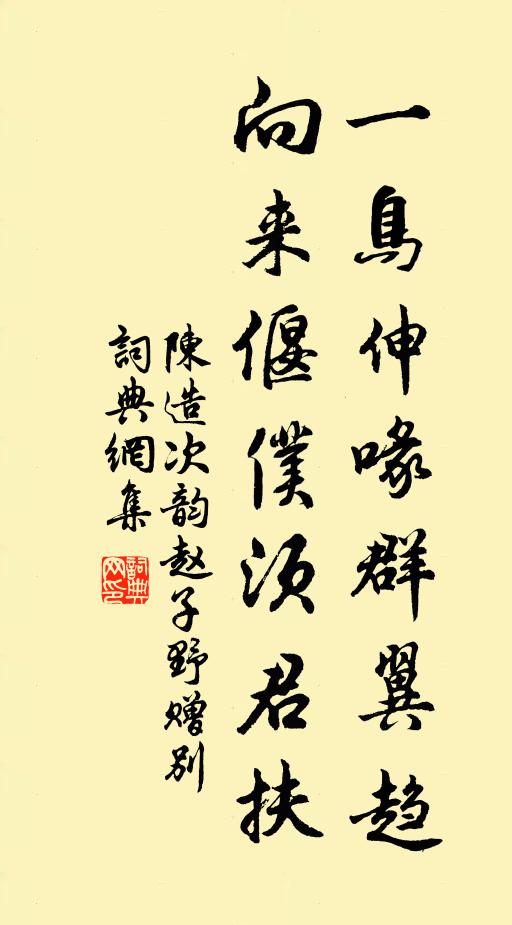 一鳥伸喙群翼趋
向来偃僕须君扶
陳造次韵赵子野赠别
詞典網集
詞典網印